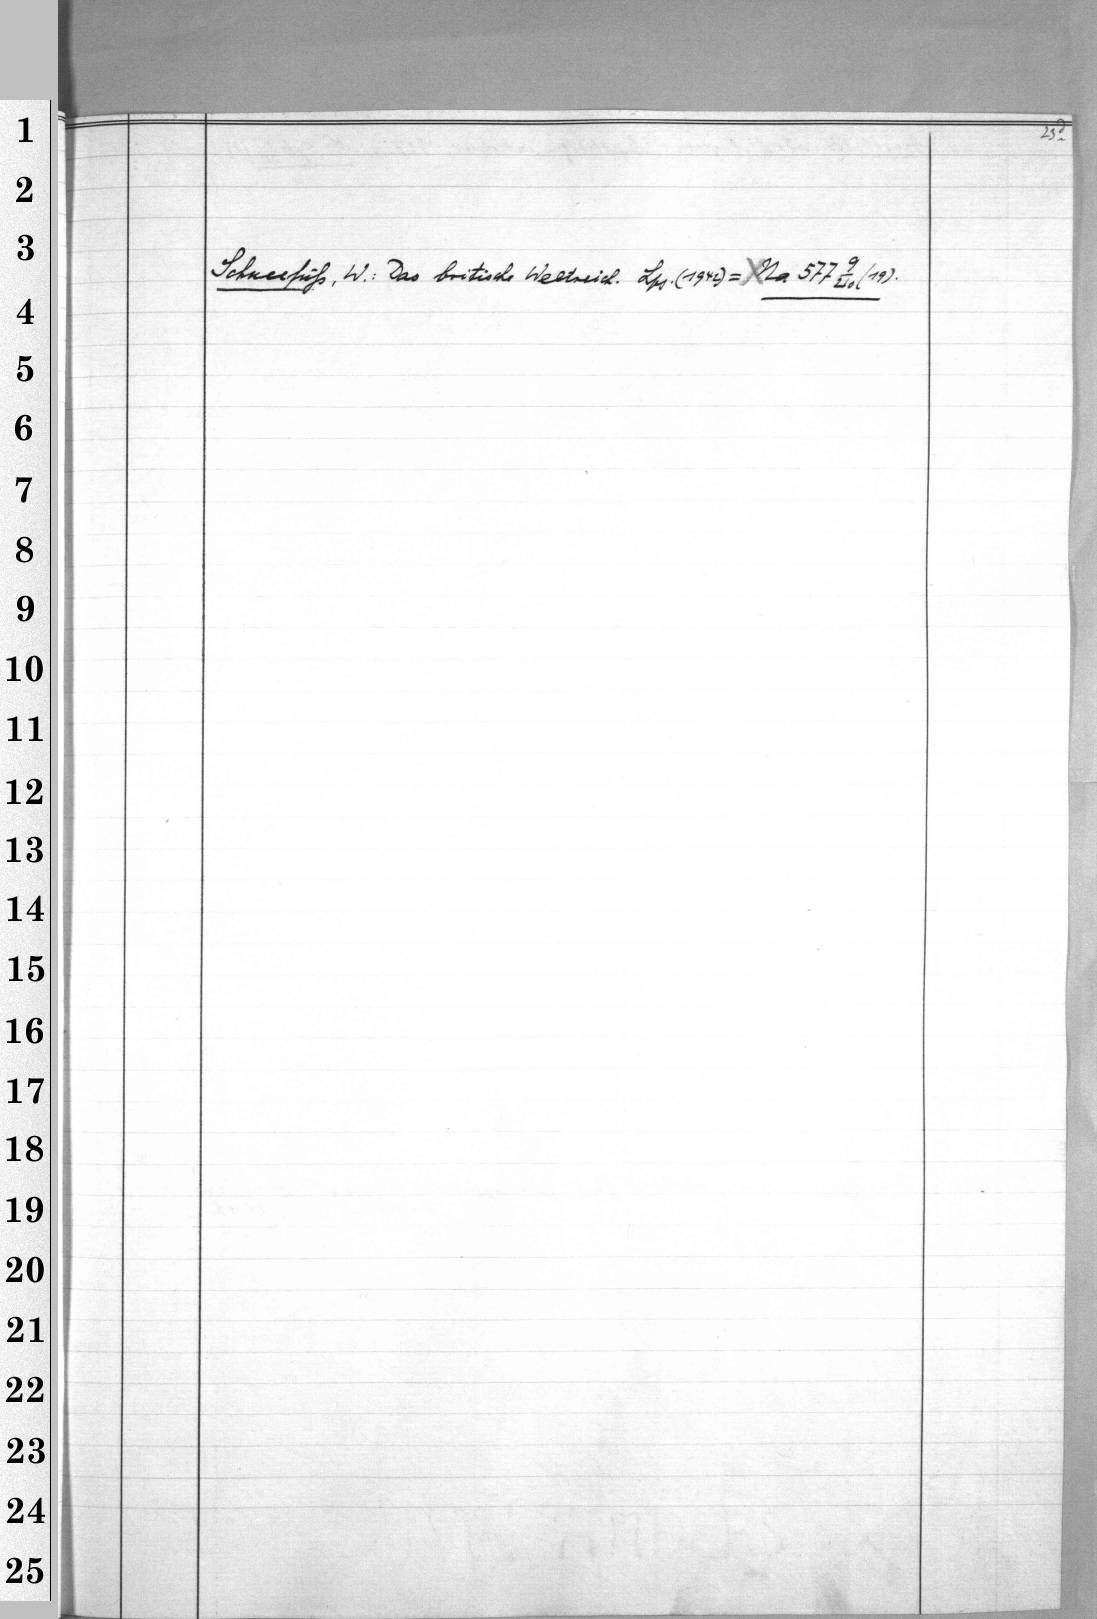 1
2
3
Schneefuß, W.: Das britische Weltreich. Lpz. (1942) = Na 577 (19).
4
5
6
7
8
9
10
11
12
13
14
15
16
17
18
19
20
21
22
23
24
25